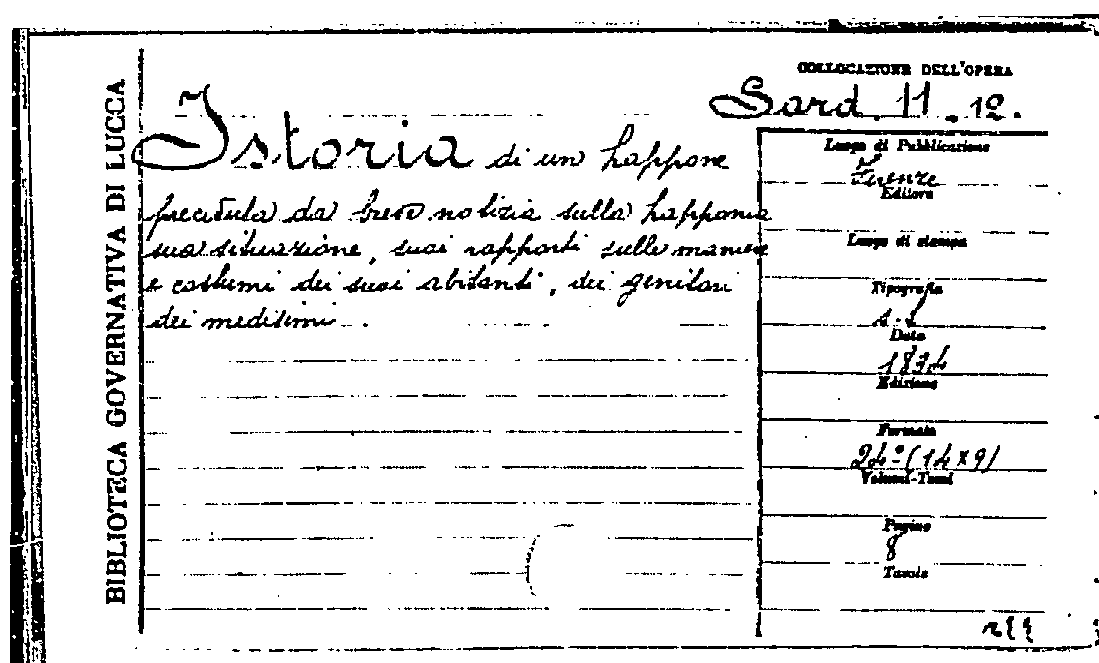 BIBLIOTECA GOVERNATIVA DI LUCCA
COLLOCAZIONE DELL'OPERA
Sard. 11. 12.
Istoria di un happone
preceduta da breve notizia sulla happonia
sua situazione, suoi rapporti sulle maniere
e costumi dei suoi abitanti, dei genitori
dei medesimi.
Luogo di Pubblicazione
Firenze
Editore
Luogo di stampa
Tipografia
s.t
Data
1874
Edizione
Formato
24º (14x9)
Volumi-Tomi
Pagine
8
Tavole